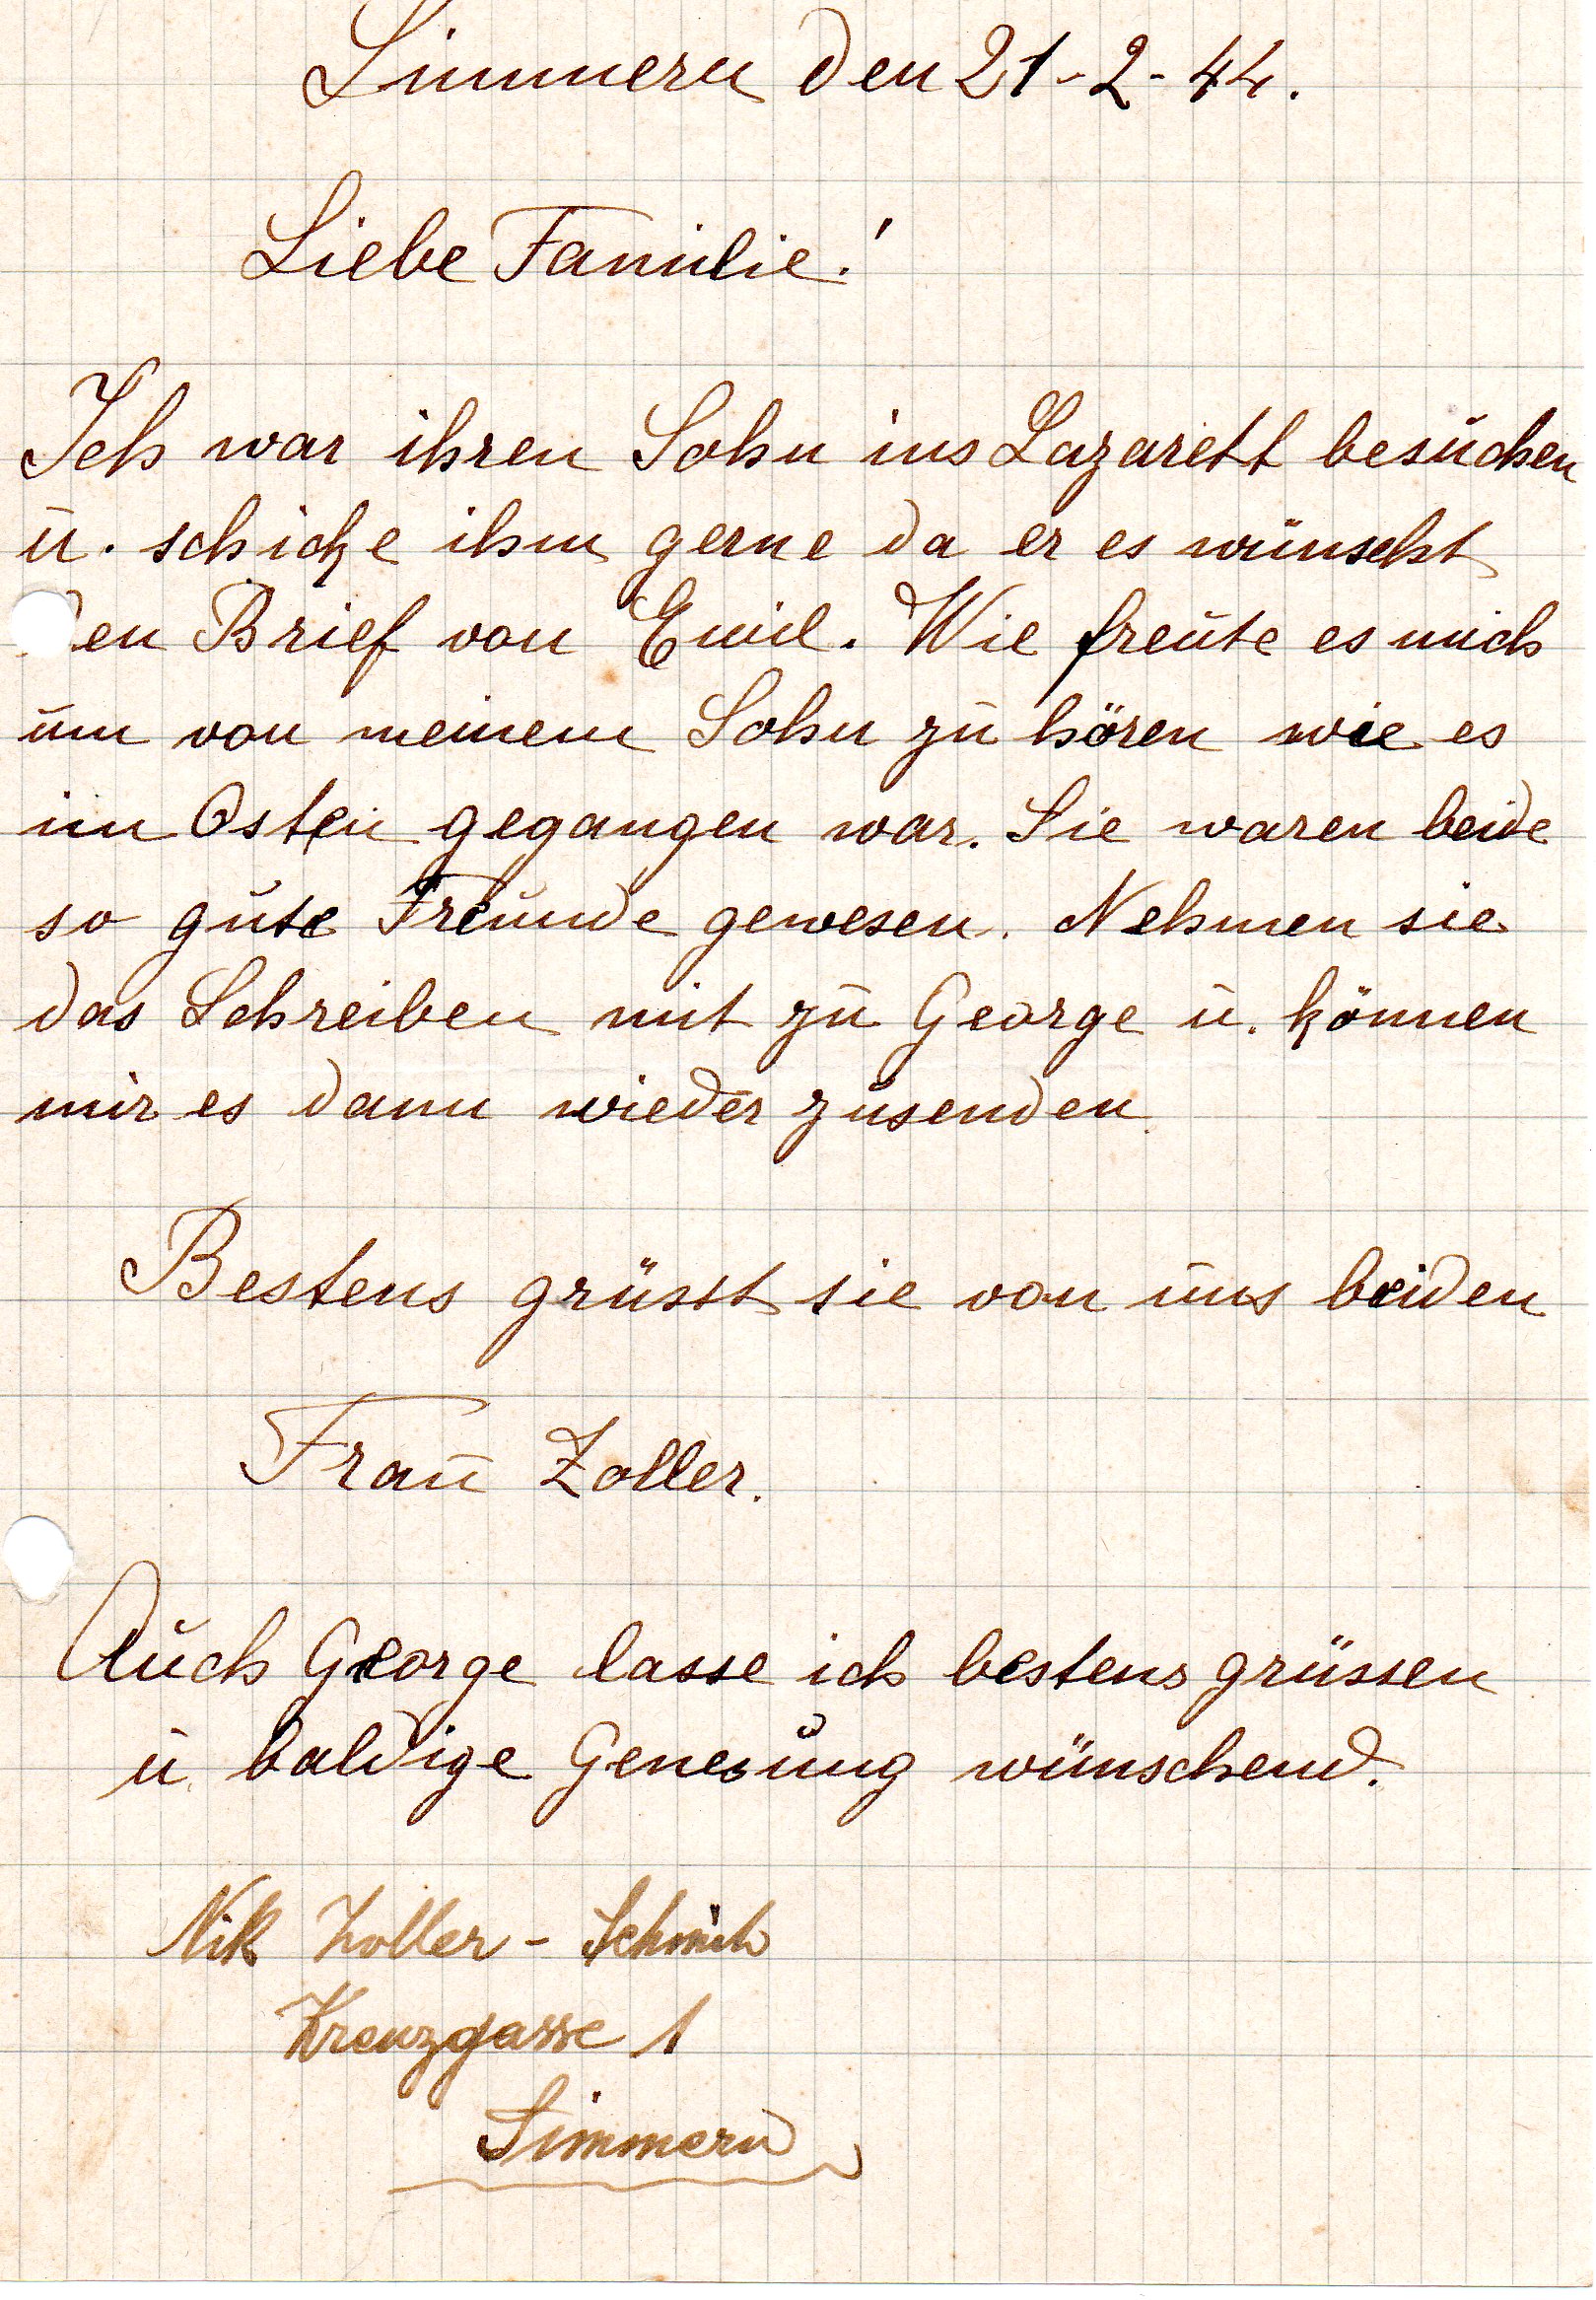 Simmern den 21-2-44.
Liebe Familie!
Ich war ihren Sohn ins Lazarett besuchen
u. schicke ihm gerne da er es wünscht
den Brief von Emil. Wie freute es mich
um von meinem Sohn zu hören wie es
im Osten gegangen war. Sie waren beide
so gute Freunde gewesen. Nehmen sie
das Schreiben mit zu George u. können
mir es dann wieder zusenden.
Bestens grüsst sie von uns beiden
Frau Zoller.
Auch George lasse ich bestens grüssen
u. baldige Genesung wünschend.
Nik Zoller -
Kreuzgasse 1
Simmern